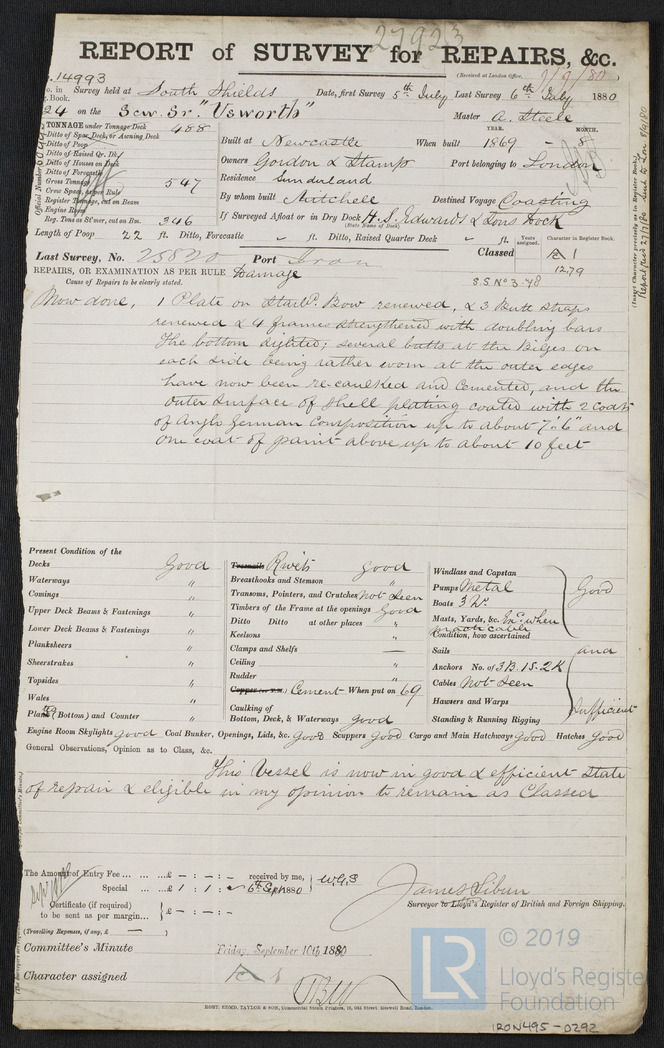 27923
REPORT of SURVEY for REPAIRS, &c.
(Received at London Office,
7/9/80
14993
No. in Survey held at South Shields Date, first Survey 5th July Last Survey 6th July 1880
Reg. Book.
24 on the Scw. Sr. "Usworth" Master A. Steele
TONNAGE under Tonnage Deck 488
Ditto of Spar Deck, or Awning Deck
Ditto of Poop
Ditto of Raised Qr. Dk.
Ditto of Houses on Deck
Ditto of Forecastle
Gross Tonnage 547
Crew Space, as per Rule
Register Tonnage, cut on Beam
Engine Room
Reg. Tons as St'mer, cut on Bm. 346
Official Number
YEAR. MONTH.
Built at Newcastle When built 1869 - 8
Owners Gordon & Stamp Port belonging to London
Residence Sunderland
By whom built Mitchell Destined Voyage Coasting
If Surveyed Afloat or in Dry Dock H. S. Edwards & Sons Dock
(State Name of Dock)
Length of Poop 22 ft. Ditto, Forecastle " ft. Ditto, Raised Quarter Deck " ft.
Years assigned.
Character in Register Book.
Last Survey, No. 25820 Port Iron Classed A 1
12.79
REPAIRS, OR EXAMINATION AS PER RULE Damage
Cause of Repairs to be clearly stated.
S.S. No 3-78
Now done, 1 Plate on Starbd. Bow renewed, & 3 Butt straps
renewed & 4 frames strengthened with doubling bars
The bottom sighted; several butts at the Bilges on
each side being rather worn at the outer edges
have now been re-caulked and Cemented, and the
outer surface of shell plating coated with 2 coats
of Anglo German Composition up to about 7'.6" and
one coat of paint above up to about 10 feet
(Insert Character precisely as in Register Book)
Present Condition of the
Decks Good
Waterways "
Comings "
Upper Deck Beams & Fastenings "
Lower Deck Beams & Fastenings "
Planksheers "
Sheerstrakes "
Topsides "
Wales "
Plank (Bottom) and Counter "
Treenails Rivets good
Breasthooks and Stemson "
Transoms, Pointers, and Crutches Not Seen
Timbers of the Frame at the openings Good
Ditto Ditto at other places "
Keelsons "
Clamps and Shelfs —
Ceiling "
Rudder "
Cement When put on 69
Caulking of
Bottom, Deck, & Waterways good
Windlass and Capstan
Pumps Metal
Boats 3 Do.
Masts, Yards, &c. Exd. when
practicable
Condition, how ascertained
Sails
Anchors No. of 3 B. 1 S. 2 K
Cables Not Seen
Hawsers and Warps
Standing & Running Rigging
Good
and
Sufficient
Engine Room Skylights good Coal Bunker, Openings, Lids, &c. Good Scuppers Good Cargo and Main Hatchways Good Hatches Good
General Observations, Opinion as to Class, &c.
This Vessel is now in good & efficient State
of repair & eligible in my opinion to remain as Classed
The Amount of Entry Fee ... ... ... £ - : - : - received by me,
Special ... £ 1 : 1 : - 6th Sept 1880
Certificate (if required)
to be sent as per margin... £ - : - : -
(Travelling Expenses, if any, £ — )
James Sibun
Surveyor to Lloyd's Register of British and Foreign Shipping.
Committee's Minute Friday, September 10th 1880
Character assigned A 1
© 2019
LR
Lloyd's Register
Foundation
IRON495-0292